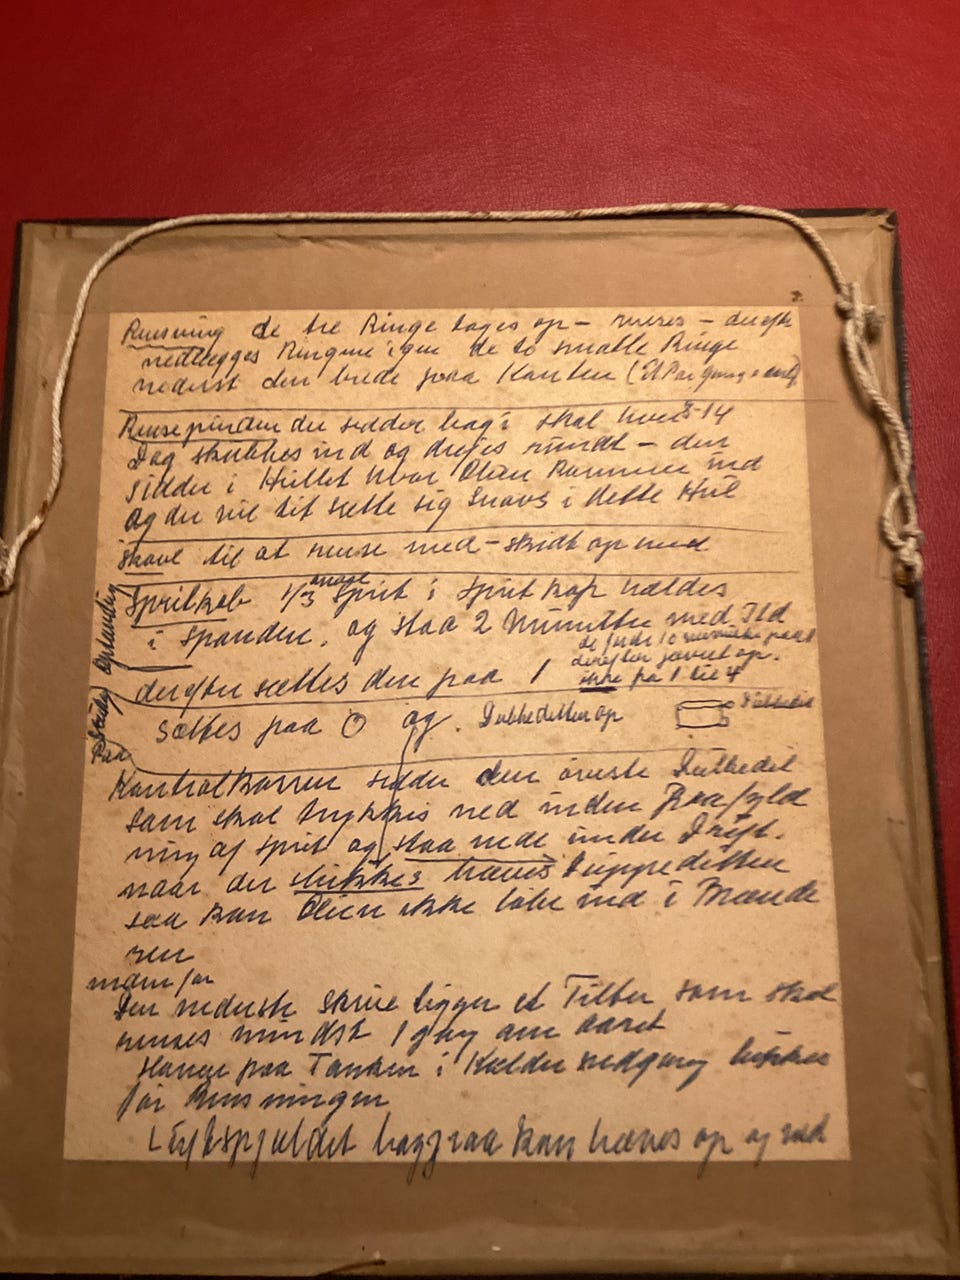 Rensning de tre Ringe tages op – renses – derefter
nedlægges Ringene igen de to smalle Ringe
nederst den brede paa Kanten (Et Par Gange
Rensepinden der sidder bag i skal hver 8-14
Dag skubbes ind og drejes rundt – den
sidder i Hullet hvor Olien Kommer ind
og der vil tit sætte sig Snavs i dette Hul
Skovl til at rense med – skidt op med
Spritkop 1/3 Sprit i Spritkop hældes
i Spanden, og staa 2 Minutter med Ild
de første 10 minutter paa 1
derefter jævnt op.
ikke på 1 til 4
derefter sættes den paa 1
Optænding
sættes paa O og . Dubbeditten op
Dubbedit
Paa
Kontrolkassen sidder den øverste Dubbedit
som skal trykkes ned inden Paafyld
ning af Sprit og staa nede under Drift.
naar der slukkes hæves Duppeditten
saa kan Olien ikke løbe ind i Brænde
ren
inden for
Den nederste Skrue ligger et Filter som skal
renses mindst 1 gang om Aaret
Hanen paa Tanken i Kælder nedgang lukkes
før Rensningen
Luftspjældet bagpaa kan hæves op og ned